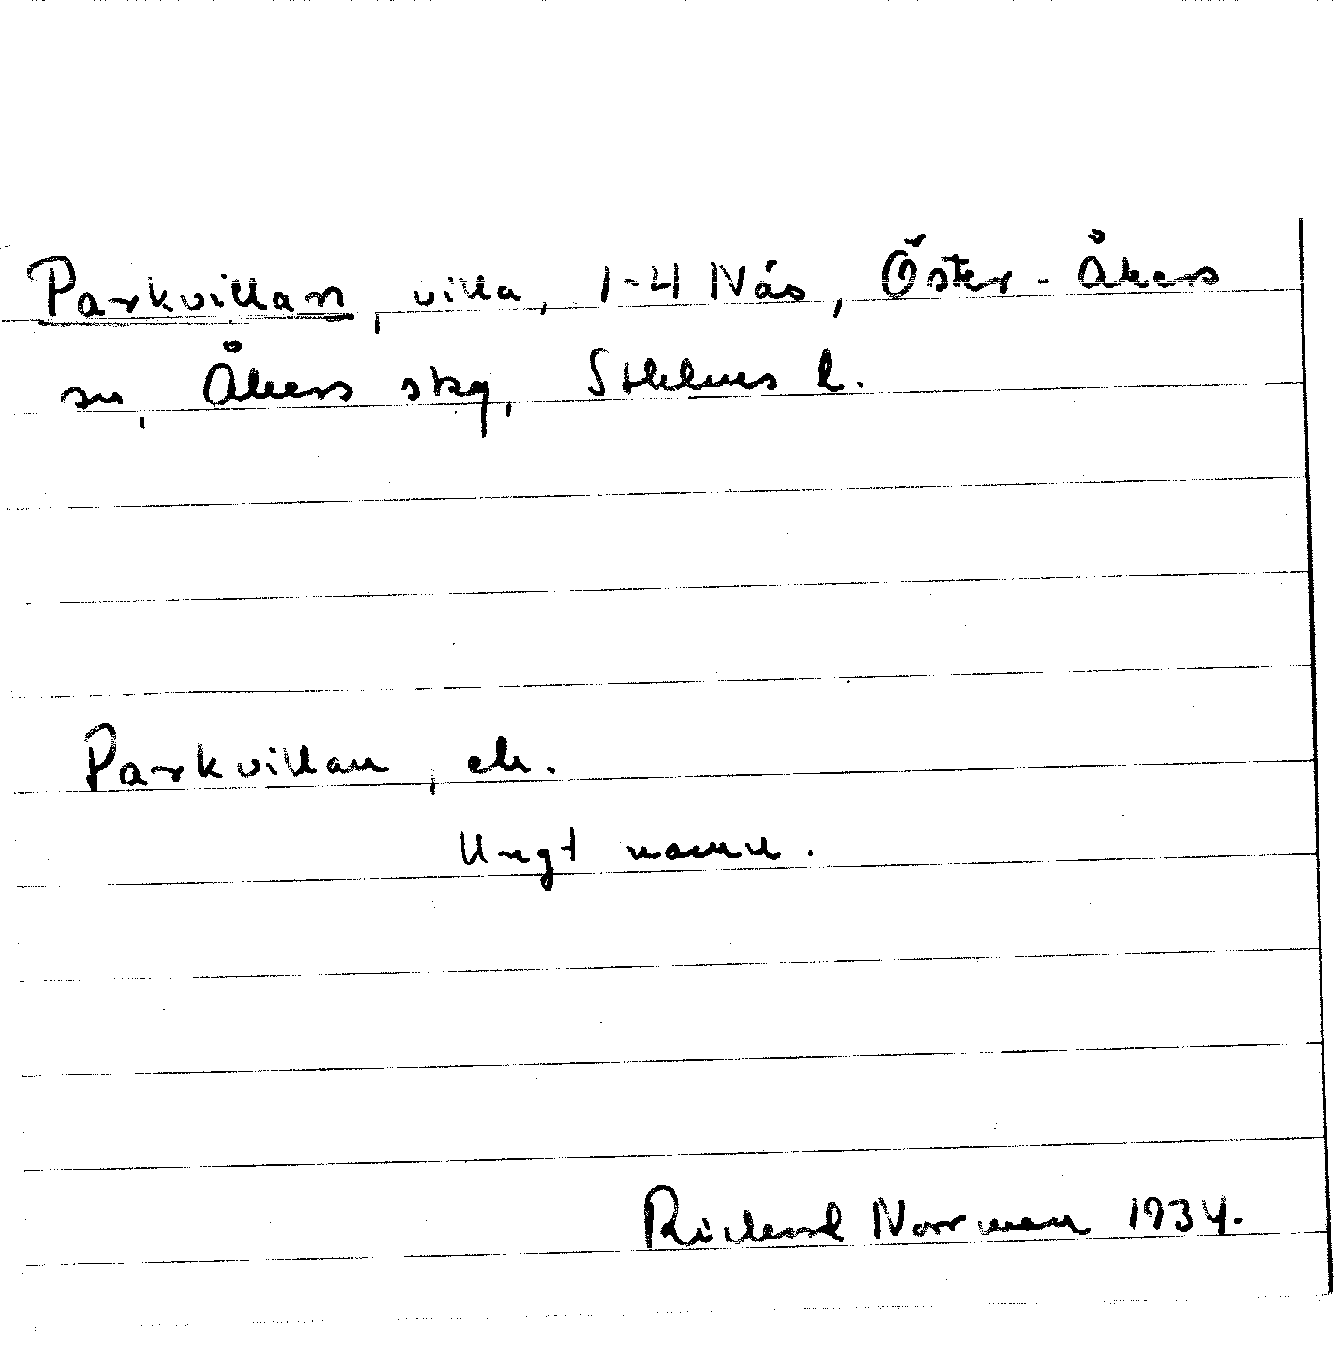 Parkvillan, villa, 1-4 Näs, Öster-Åkers
sn, Åkers skg, Sthlms l.
Parkvillan, eh.
Ungt namn.
Richard Norrman 1934.